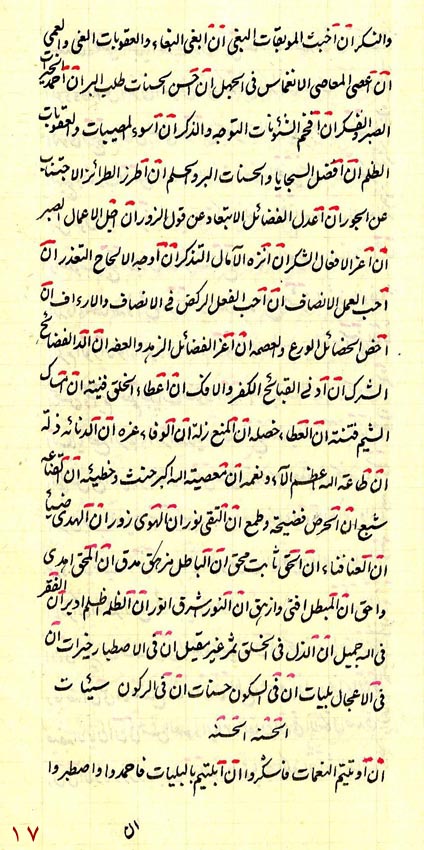 والفكر ان اخبث الموبقات البغى ان ابغى البغاء والعقوبات الغى والعمى
ان عصى المعاصى الانغماس فى الجهل ان حسن الحسنات طلب البر ان احمد
الصبر والفكر ان افخم الشئونات التوجه والذكر ان اسوء المصيبات والعقوبات
الظلم ان افضل السجايا والحسنات البر والحلم ان اطرز الطرائز الاجتناب
عن الجور ان اعدل الفضائل الابتعاد عن قول الزور ان اجل الاعمال الصبر
ان اعز الافعال الشكر ان انزه الآمال التذكر ان اوجه الالحاح التعذر ان
احب العمل الانصاف ان احب الفعل الركض فى الانصاف والارءاف ان
اخص الخصائل الورع والعصمه ان اعز الفضائل الزهد والعفه ان الد الفضائح
الشرك ان ادنى القبائح الكفر والافك ان اعطاء الخلق فتيته ان
الشيم فتنته ان العطاء خصله ان المنع زلة ان الوفاء عزه ان الدنائه ذلة
ان طاعة الله اعظم الآء ونعمه ان معصيته الله اكبر حنث وخطيئه ان القناعه
شبع ان الحرص فضيحة وطمع ان التقى نور ان الهوى زور ان الهدى ضياء
ان العنا فناء ان الحق ثابت محق ان الباطل مزهق مدق ان المحق اهدى
واحق ان المبطل افنى وازهق ان النور شرق انور ان الظلمه ظلم ادبر ان الفقر
فى الله جميل ان الذل فى الخلق ثمر غير مقيل ان فى الاصطبار خيرات ان
فى الاعجال بليات ان فى السكون حسنات ان فى الركون سيئات
الحسنه الحسنه
ان اوتيتم النعمات فاشكروا ان ابليتم بالبليات فاحمدوا واصطبروا
ان
١٧